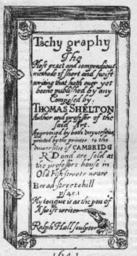 Tachy graphy
The
Most exact and compendious
methode of short and swift
writing that hath ever yet
beene published by any
Composed by
THOMAS SHELTON
Author and professor of the
said Art
Approoved by both Unyversities
printed by the printer to the
University of CAMBRIDG
R D and are sold at
the professors house in
Old Fishstreet neare
Bread street hill
Ps 45.1
My tongue is as the pen of
A swift writer
Ralph Hall sculpsit
1641